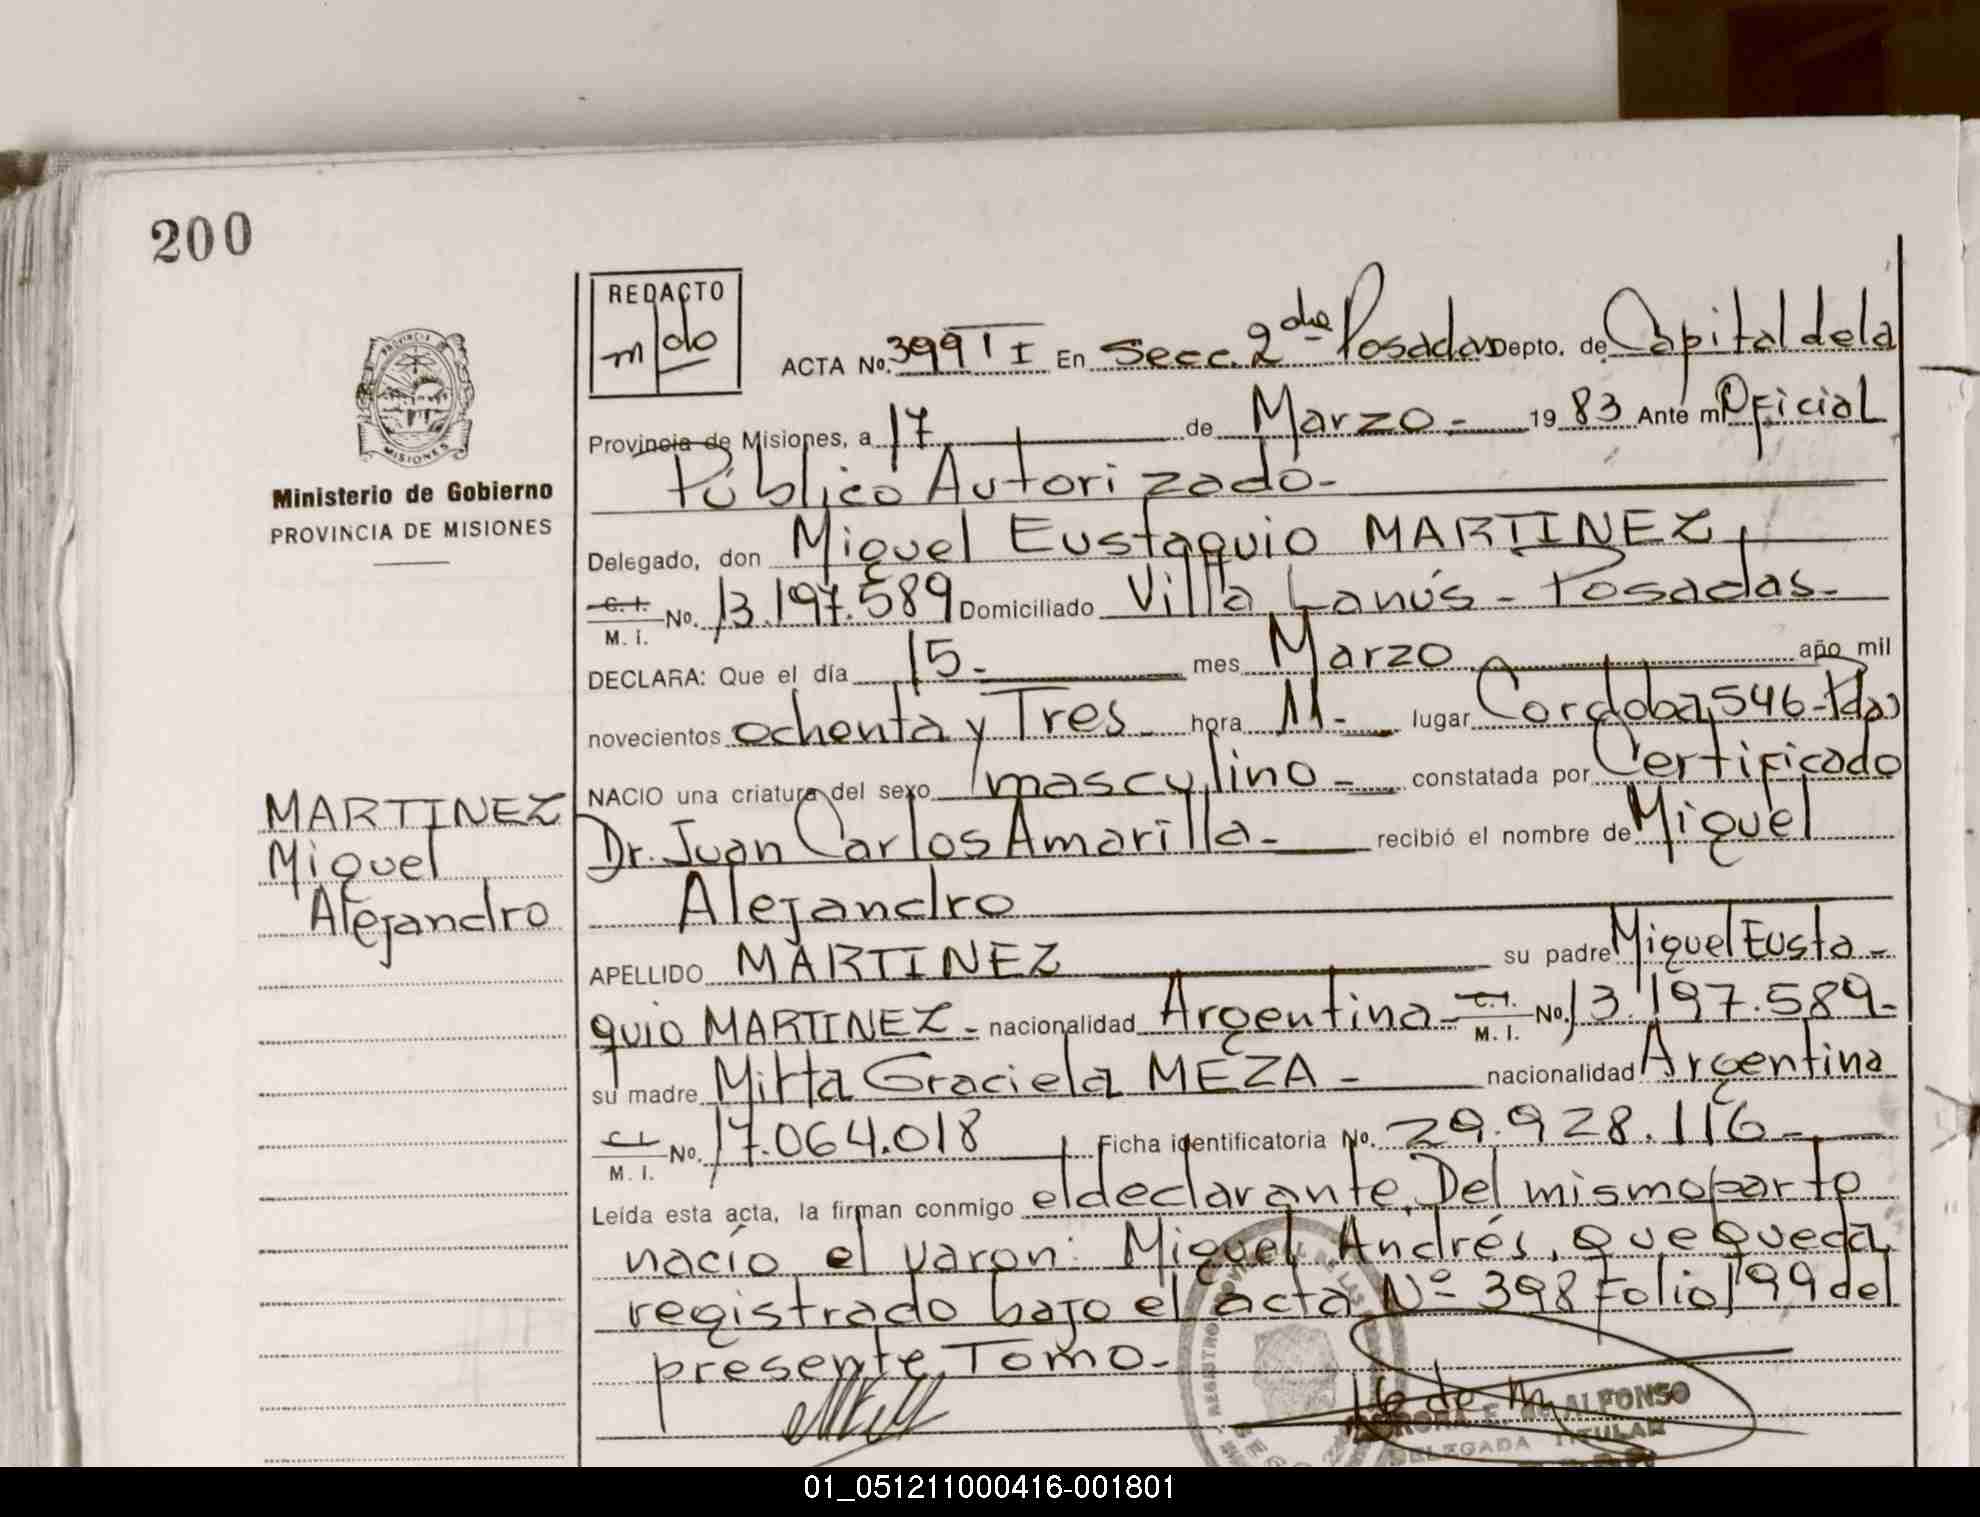 200
REDACTO
m do
ACTA No. 399 T I En Secc. 2da Posadas Depto. de Capital de la
Provincia de Misiones, a 17 de Marzo.- 1983 Ante mi Oficial
Público Autorizado-
Ministerio de Gobierno
PROVINCIA DE MISIONES
Delegado, don Miguel Eustaquio MARTINEZ,
C. I. M. I. No. 13.197.589 Domiciliado Villa Lanús - Posadas.-
DECLARA: Que el día 15.- mes Marzo año mil
novecientos ochenta y Tres- hora 11.- lugar Cordoba, 546-Pdas
NACIO una criatura del sexo masculino- constatada por Certificado
Dr. Juan Carlos Amarilla- recibió el nombre de Miguel
Alejandro
MARTINEZ
Miguel
Alejandro
APELLIDO MARTINEZ su padre Miguel Eusta-
quio MARTINEZ- nacionalidad Argentina- C. I. M. I. No. 13.197.589-
su madre Mirta Graciela MEZA- nacionalidad Argentina
C. I. M. I. No. 17.064.018 Ficha identificatoria No. 29.928.116-
Leída esta acta, la firman conmigo el declarante. Del mismo parto
nacío el varon: Miguel Andrés, que queda
registrado bajo el acta Nº 398 Folio 199 del
presente Tomo-
E. de ALFONSO
DELEGADA TITULAR
01_051211000416-001801